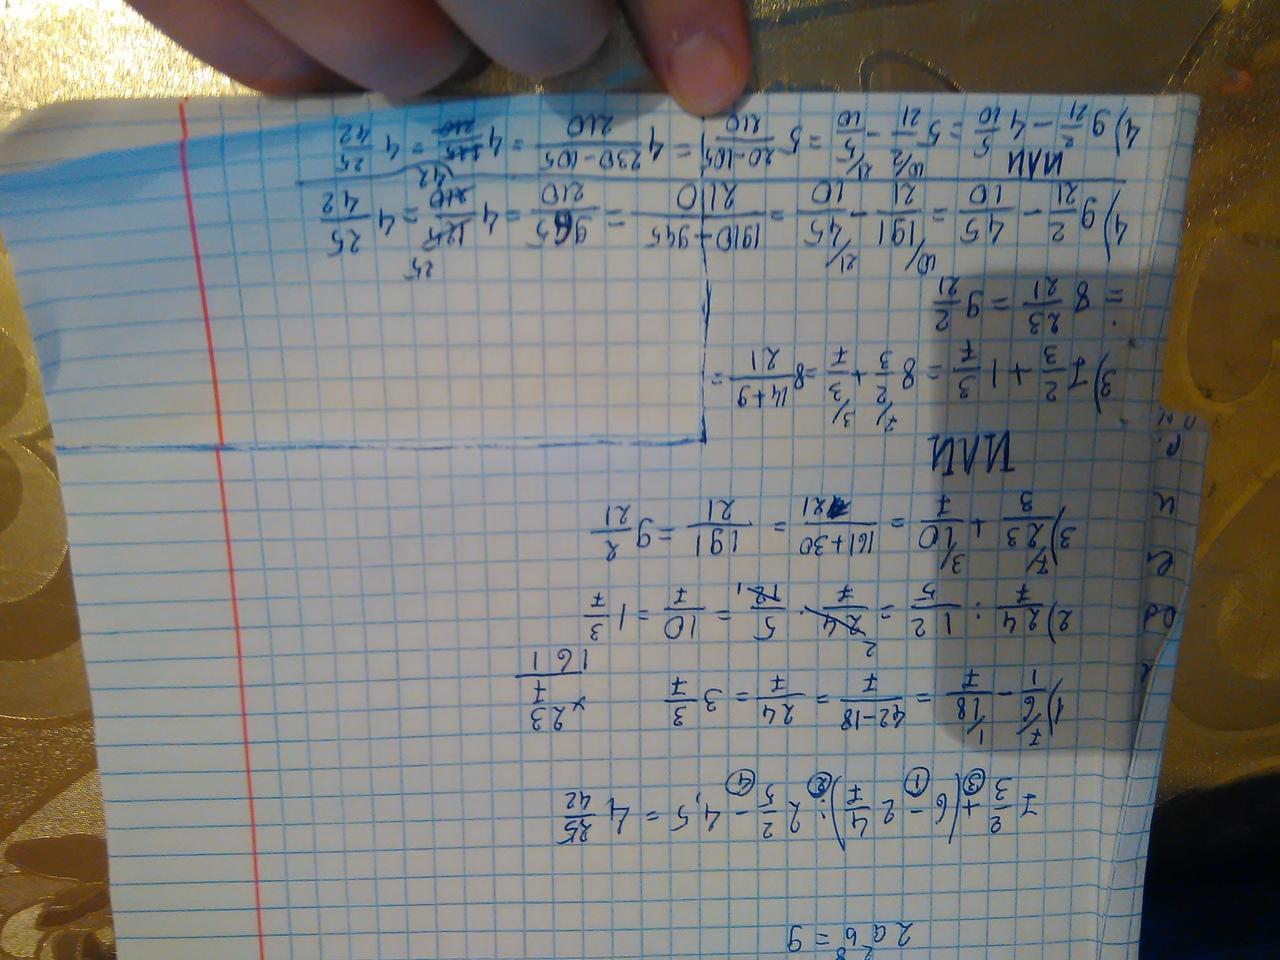 2ab = 9
7 2/3 + (6 - 2 4/7) : 2 2/5 - 4,5 = 4 25/42
③ ① ② ④
1) 6/1 - 18/7 = (42-18)/7 = 24/7 = 3 3/7
× 23
7
161
2) 24/7 : 12/5 = 24/7 · 5/12 = 10/7 = 1 3/7
3) 23/3 + 10/7 = (161+30)/21 = 191/21 = 9 2/21
ИЛИ
3) 7 2/3 + 1 3/7 = 8 2/3 + 3/7 = 8 (14+9)/21 =
= 8 23/21 = 9 2/21
4) 9 2/21 - 45/10 = 191/21 - 45/10 = (1910-945)/210 = 965/210 = 4 125/210 = 4 25/42
ИЛИ
4) 9 2/21 - 4 5/10 = 5 2/21 - 5/10 = 5 (20-105)/210 = 4 (230-105)/210 = 4 125/210 = 4 25/42